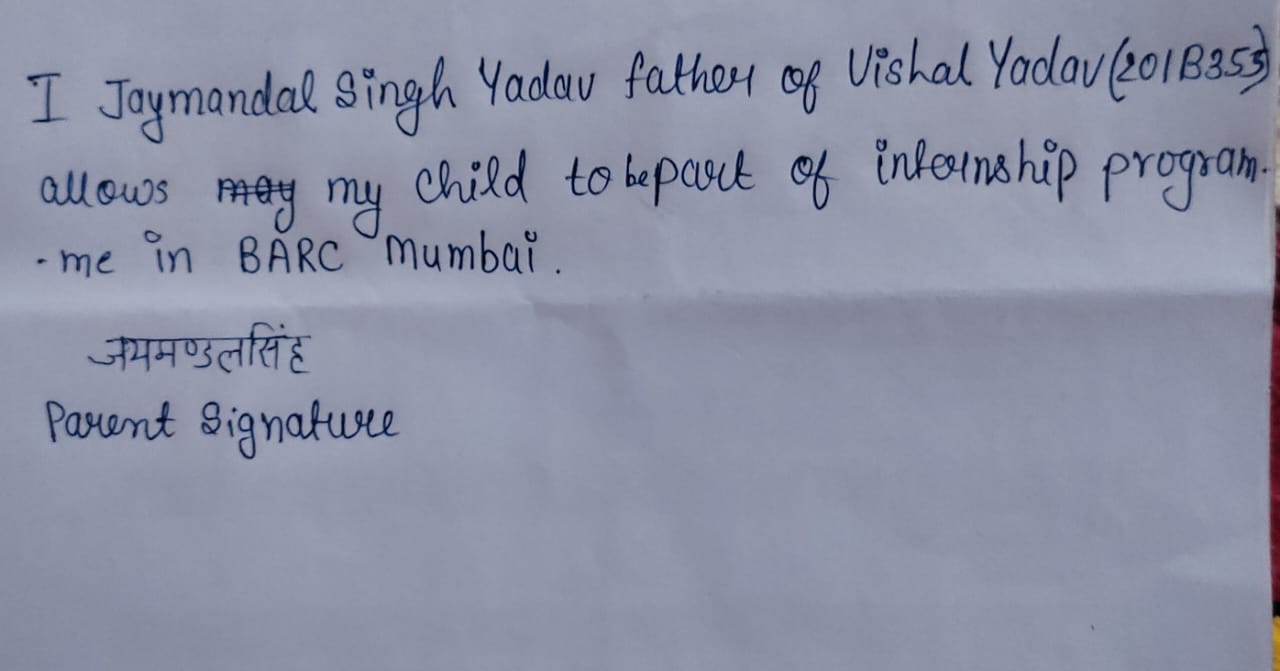 I Jaymandal Singh Yadav father of Vishal Yadav (201B353)
allows may my child to be part of internship program-
-me in BARC Mumbai.
जयमण्डलसिंह
Parent Signature